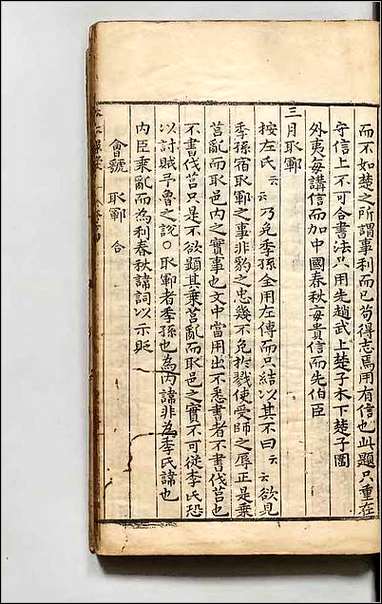 而不如楚之所謂事利而已苟得志焉用有信也此題只重在
守信上不可合書法只用先趙武上楚子木下楚子圍
外夷每講信而加中國春秋每貴信而先伯臣
三月取鄆
按左氏云云乃見季孫全用左傳而只結以其不曰云云欲見
季孫宿取鄆之事非豹之忠幾不免於戮使受師之辱正是乗
莒亂而取邑之實事也文中當用出不悉書者不書伐莒也
不書伐莒只是不欲顕其乗莒亂而取邑之實不可從李氏恐
以討賊予魯之說○取鄆者季孫也為内諱非為季氏諱也
内臣乘亂而為利春秋諱詞以示貶
會虢 取鄆 合